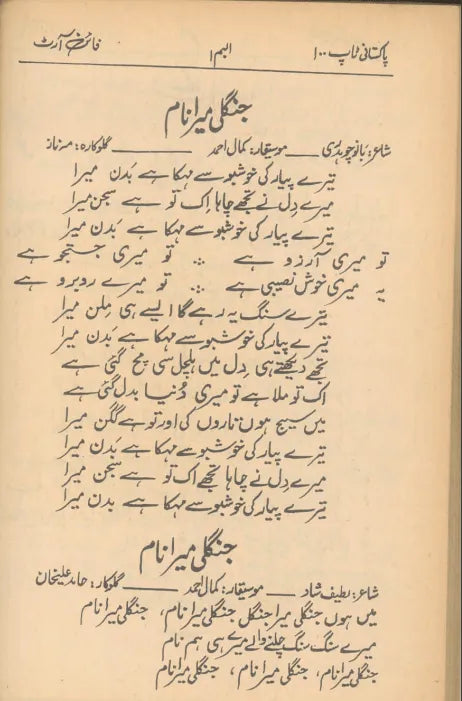 پاکستانی ٹاپ ۱۰۰ البم ۱ فائن آرٹ
جنگلی میرا نام
شاعر: بانو چوہدری ــــ موسیقار: کمال احمد ــــ گلوکارہ: مہناز
تیرے پیار کی خوشبو سے مہکا ہے بَدن میرا
میرے دِل نے تجھے چاہا اِک تو ہے سجن میرا
تیرے پیار کی خوشبو سے مہکا ہے بَدن میرا
تو میری آرزو ہے ؞ تو میری جستجو ہے
یہ میری خوش نصیبی ہے ؞ تو میرے روبرو ہے
تیرے سنگ یہ رہے گا ایسے ہی مِلن میرا
تیرے پیار کی خوشبو سے مہکا ہے بَدن میرا
تجھے دیکھتے ہی دِل میں ہلچل سی مچ گئی ہے
اک تو ملا ہے تو میری دُنیا بدل گئی ہے
میں سیج ہوں تاروں کی اور تو ہے گگن میرا
تیرے پیار کی خوشبو سے مہکا ہے بَدن میرا
میرے دِل نے چاہا تجھے اک تو ہے سجن میرا
تیرے پیار کی خوشبو سے مہکا ہے بدن میرا
جنگلی میرا نام
شاعر: لطیف شاد ــــ موسیقار: کمال احمد ــــ گلوکار: حامد علیخان
میں ہوں جنگلی میرا جنگل جنگلی میرا نام، جنگلی میرا نام
میرے سنگ سنگ چلنے والے میرے ہی ہم نام
جنگلی میرا نام، جنگلی میرا نام، جنگلی میرا نام